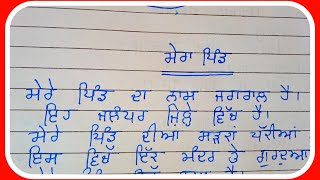 ਮੇਰਾ ਪਿੰਡ
ਮੇਰੇ ਪਿੰਡ ਦਾ ਨਾਮ ਜਗਰਾਲ ਹੈ।
ਇਹ ਜਲੰਧਰ ਜ਼ਿਲ੍ਹੇ ਵਿੱਚ ਹੈ।
ਮੇਰੇ ਪਿੰਡ ਦੀਆਂ ਸੜਕਾਂ ਪੱਕੀਆਂ
ਇਸ ਵਿੱਚ ਇੱਕ ਮੰਦਰ ਤੇ